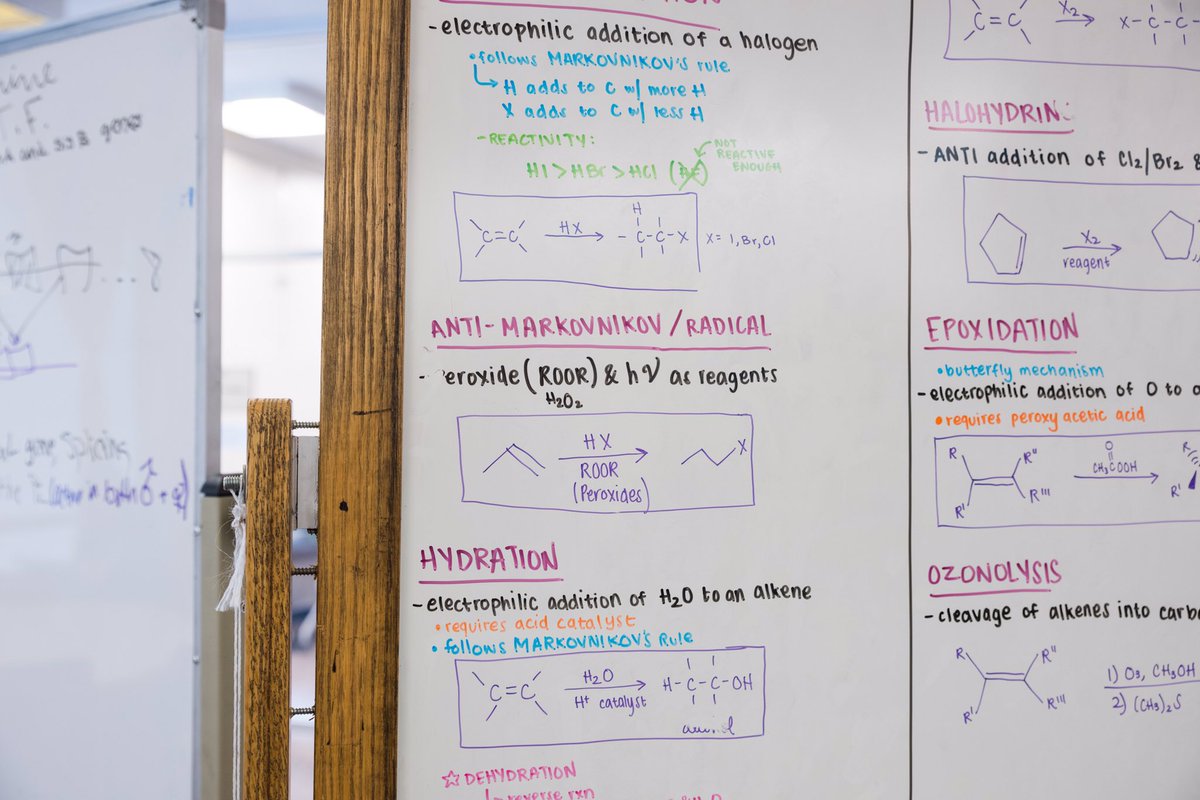 T.F.
and
gene splicing
- electrophilic addition of a halogen
• follows MARKOVNIKOV'S rule
↳ H adds to C w/ more H
X adds to C w/ less H
- REACTIVITY:
HI > HBr > HCl (HF)
NOT
REACTIVE
ENOUGH
C=C
HX
H
- C - C - X
X = I, Br, Cl
ANTI-MARKOVNIKOV / RADICAL
- eroxide (ROOR) & hν as reagents
H₂O₂
HX
ROOR
(Peroxides)
X
HYDRATION
- electrophilic addition of H₂O to an alkene
• requires acid catalyst
• follows MARKOVNIKOV'S RULE
C=C
H₂O
H⁺ catalyst
H - C - C - OH
☆ DEHYDRATION
reverse rxn
C=C
X₂
X - C - C
HALOHYDRIN:
- ANTI addition of Cl₂/Br₂ &
X₂
reagent
EPOXIDATION
• butterfly mechanism
- electrophilic addition of O to
• requires peroxy acetic acid
R
R'
R"
R'''
O
CH₃COOH
R
R'
OZONOLYSIS
- cleavage of alkenes into carbo
R
R'
R"
R'''
1) O₃, CH₃OH
2) (CH₃)₂S